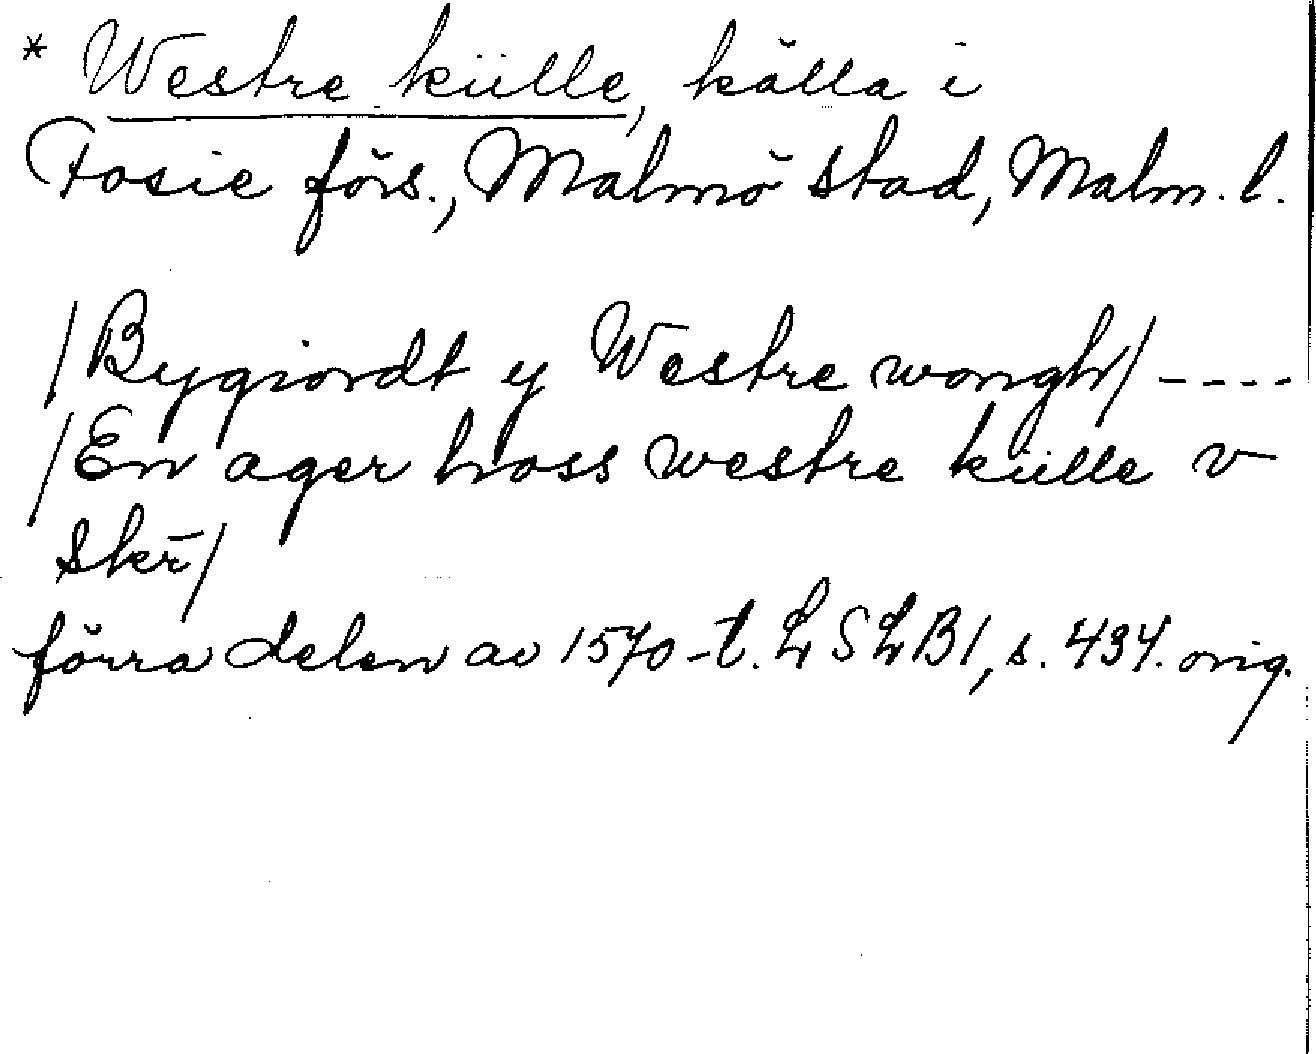 * Westre külle, källa i
Fosie förs., Malmö stad, Malm. l.
/Bygiordt y Westre wongh/ ----
/En ager hoss westre külle v
skr̄/
förra delen av 1570-t. LSLB1, s. 434. orig.